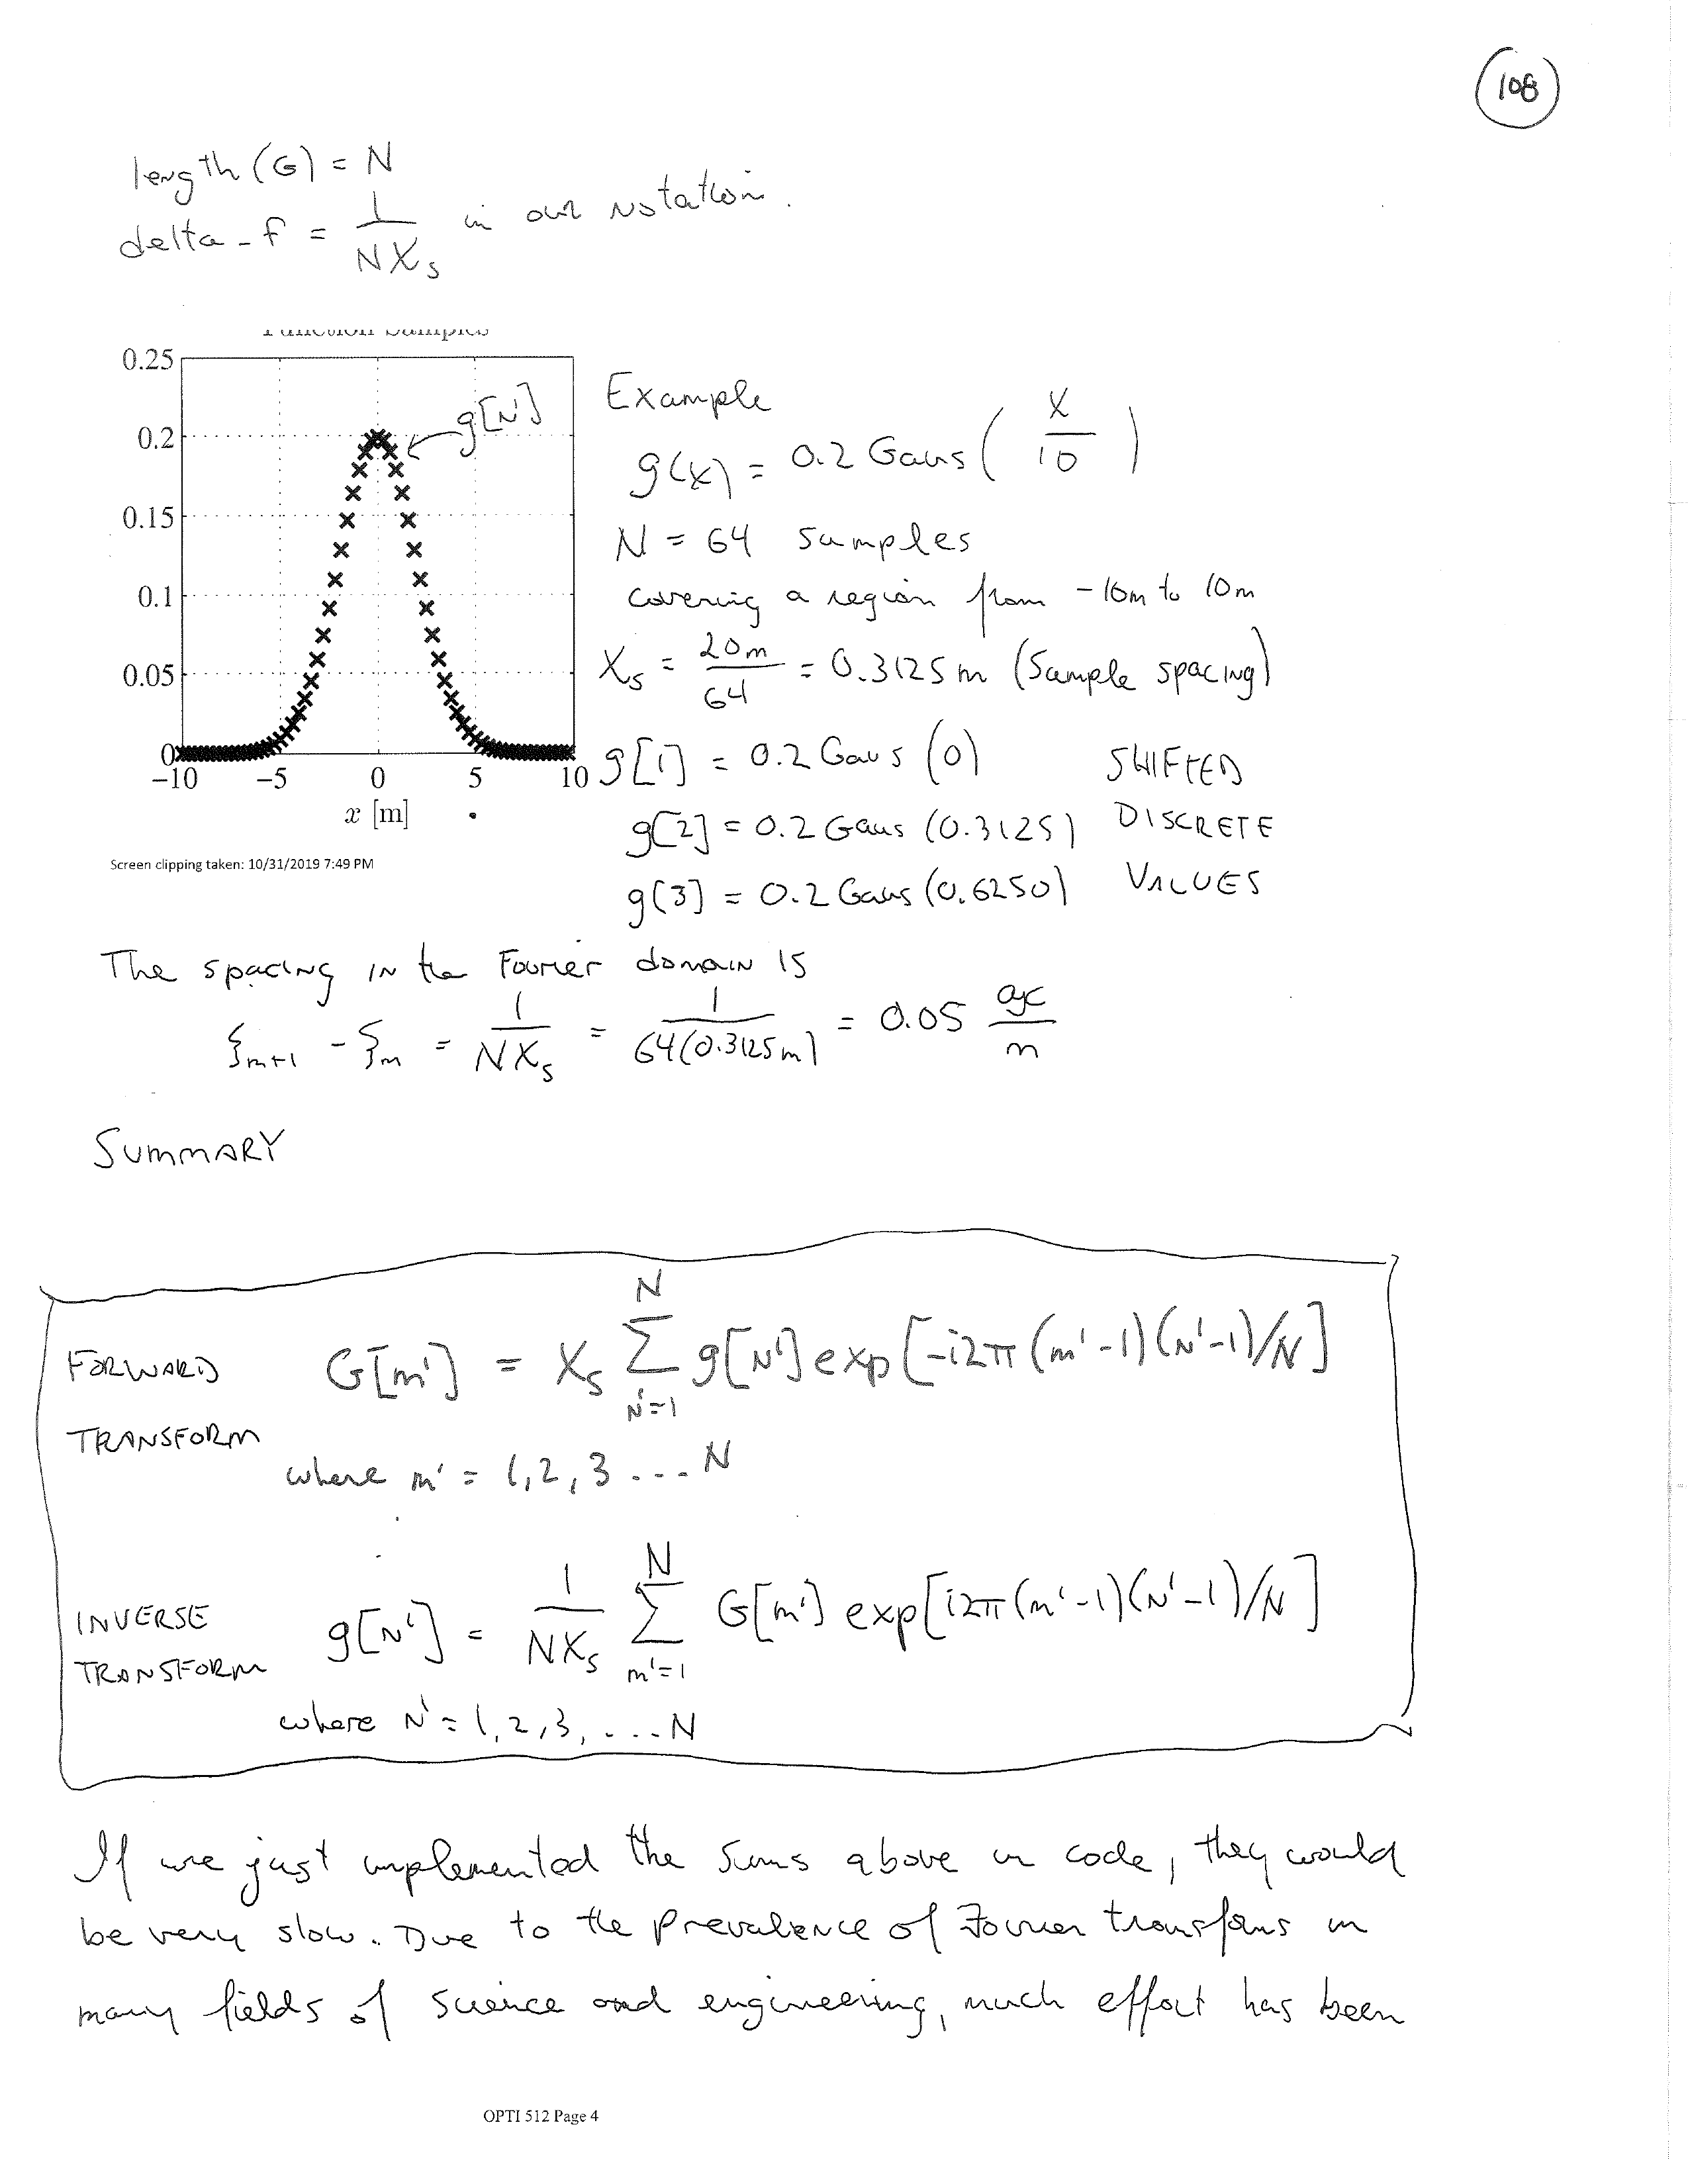 108
length (G) = N
delta-f = 1/(NXs) in our notation.
Function Samples
0.25
0.2
0.15
0.1
0.05
0
-10 -5 0 5 10
x [m]
g[N']
Screen clipping taken: 10/31/2019 7:49 PM
Example
g(x) = 0.2 Gaus (x/10)
N = 64 samples
covering a region from -10m to 10m
Xs = 20m/64 = 0.3125 m (Sample spacing)
g[1] = 0.2 Gaus (0) SHIFTED
g[2] = 0.2 Gaus (0.3125) DISCRETE
g[3] = 0.2 Gaus (0.6250) VALUES
The spacing in the Fourier domain is
ξm+1 - ξm = 1/(NXs) = 1/(64(0.3125m)) = 0.05 cyc/m
SUMMARY
FORWARD TRANSFORM
G[m'] = Xs Σ_{N'=1}^{N} g[N'] exp[-i2π(m'-1)(N'-1)/N]
where m' = 1, 2, 3 ... N
INVERSE TRANSFORM
g[N'] = 1/(NXs) Σ_{m'=1}^{N} G[m'] exp[i2π(m'-1)(N'-1)/N]
where N' = 1, 2, 3, ... N
If we just implemented the sums above in code, they would
be very slow. Due to the prevalence of Fourier transforms in
many fields of science and engineering, much effort has been
OPTI 512 Page 4